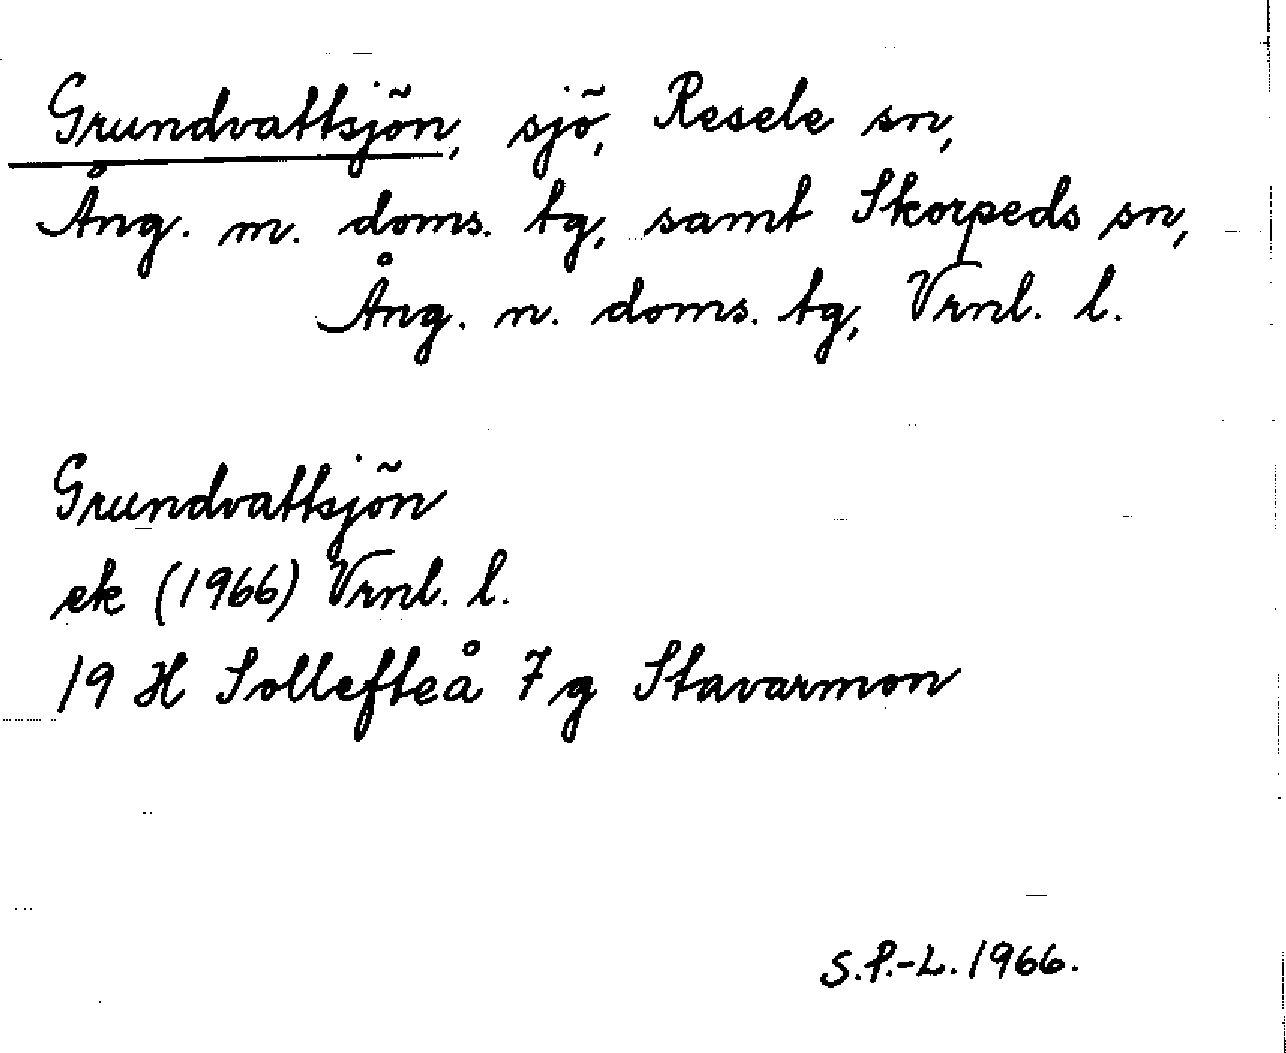 Grundvattsjön, sjö, Resele sn,
Ång. m. doms. tg, samt Skorpeds sn,
Ång. n. doms. tg, Vrnl. l.
Grundvattsjön
ek (1966) Vrnl. l.
19 H Sollefteå 7g Stavarmon
S.P.-L. 1966.